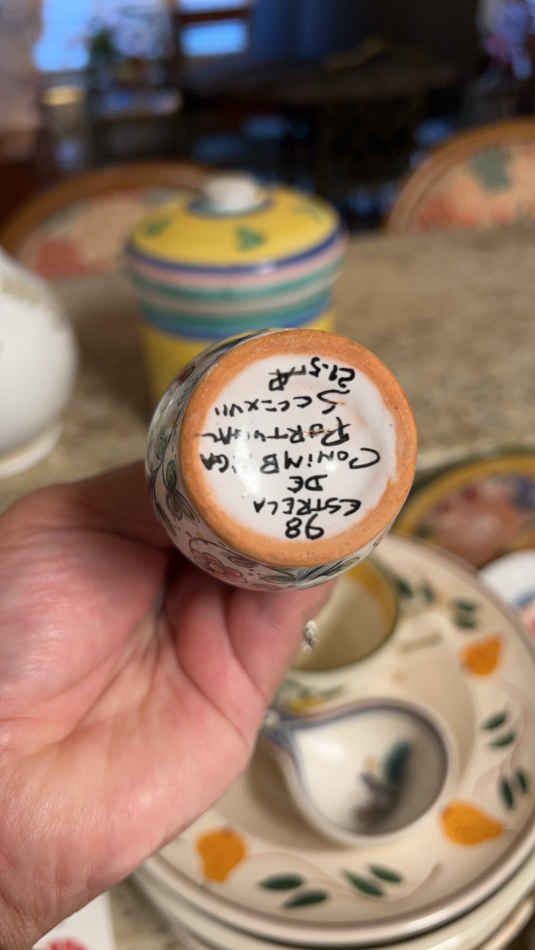 98
ESTRELA
DE
CONIMBRIGA
PORTUGAL
SEC=XVII